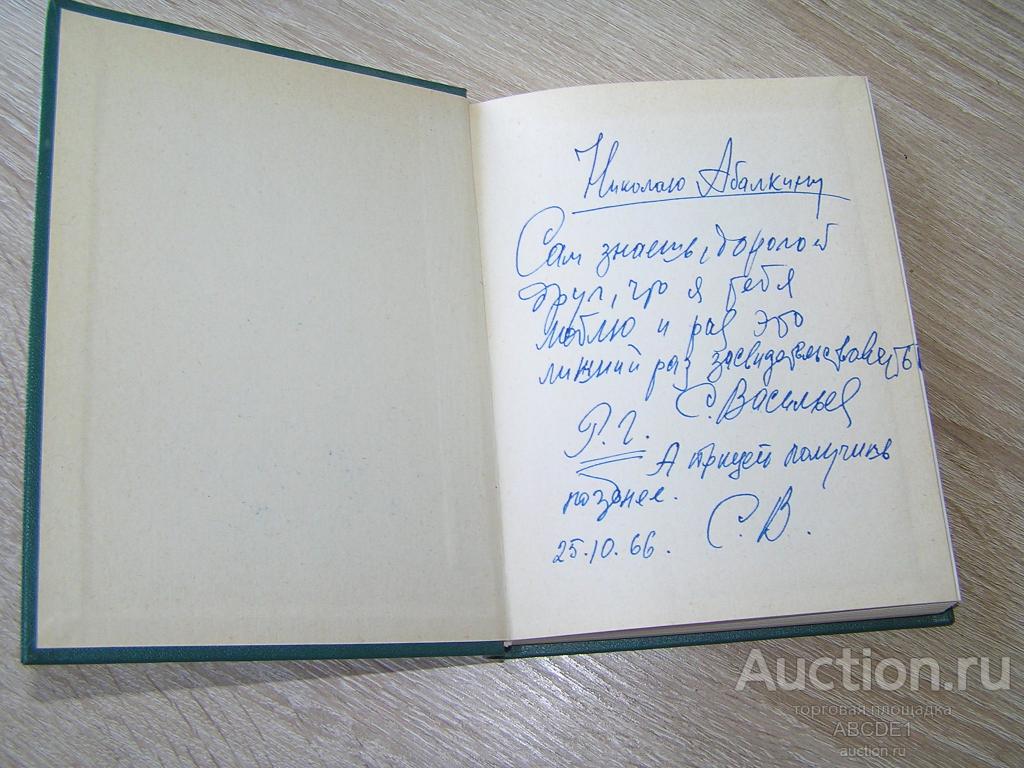 Николаю Абалкину
Сам знаешь, дорогой
друг, что я тебя
люблю и рад это
лишний раз засвидетельствовать
С. Васильев
P.S.
А получишь
позднее.
С. В.
25.10.66.
Auction.ru
торговая площадка
ABCDE1
auction.ru